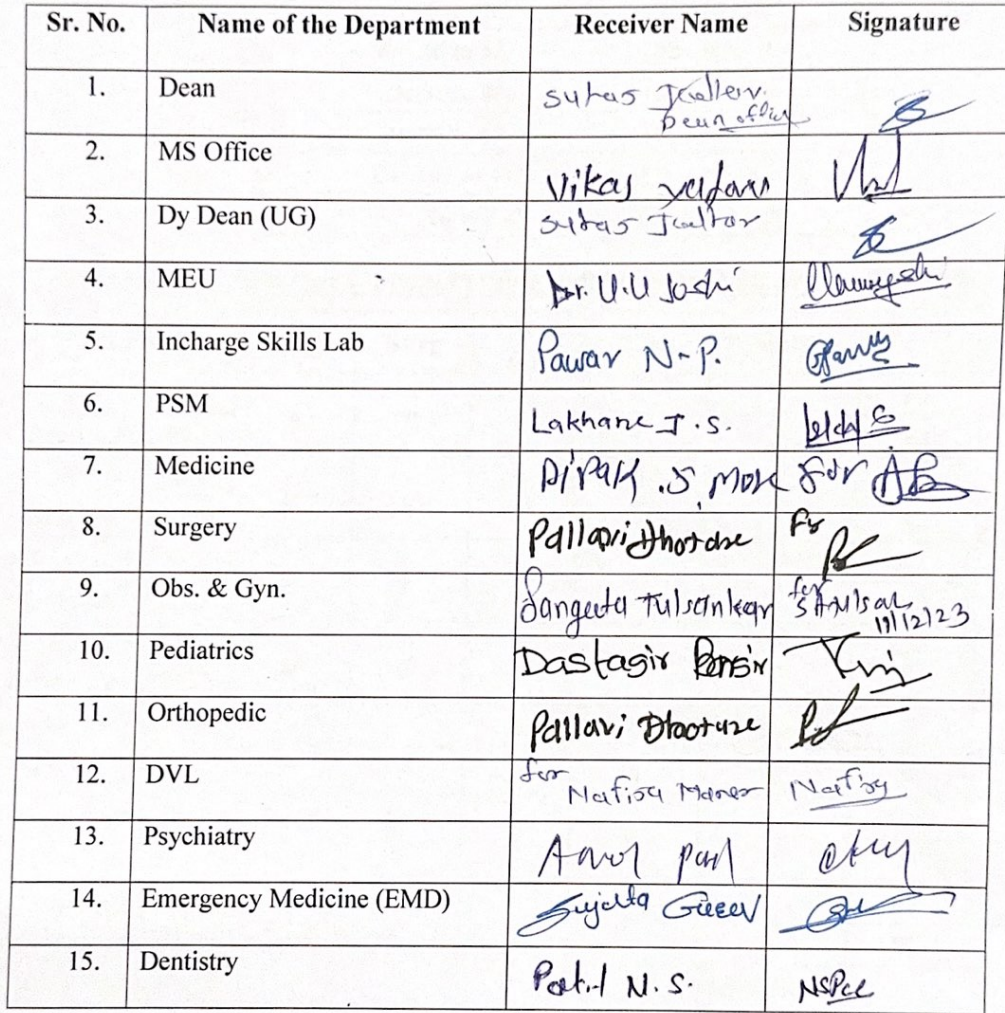 Sr. No. Name of the Department Receiver Name Signature
1. Dean Suhas
Dean office
2. MS Office Vikas
3. Dy Dean (UG) Suhas
4. MEU Dr. U.U Joshi
5. Incharge Skills Lab Pawar N-P.
6. PSM Lakhane J.S.
7. Medicine Dipak .S More for
8. Surgery Pallavi for
9. Obs. & Gyn. Sangeeta Tulsankar for
11/12/23
10. Pediatrics Dastagir
11. Orthopedic Pallavi
12. DVL for
Nafisa
13. Psychiatry
14. Emergency Medicine (EMD) Sujata
15. Dentistry Patil N.S.